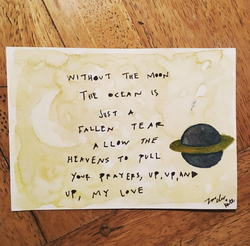 WITHOUT THE MOON
THE OCEAN IS
JUST A
FALLEN TEAR
ALLOW THE
HEAVENS TO PULL
YOUR PRAYERS, UP, UP, AND
UP, MY LOVE